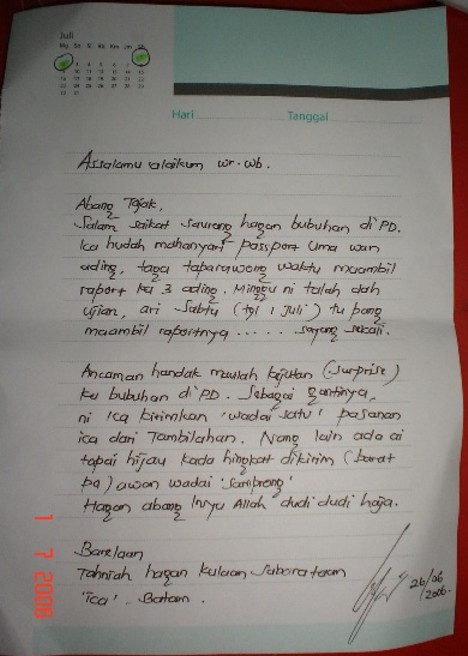 Juli
Hari Tanggal
Assalamu alaikum wr. wb.
Abang Tajak.
Salam saikat saurang hagan bubuhan di PD.
Ica hudah mahanyari passport uma wan
ading, taga taparawang waktu maambil
raport ka 3 ading. Minggu ni talah dah
ujian, ari Sabtu (tgl 1 Juli) tu pang
maambil raportnya ..... sayang sekali.
Ancaman handak maulah kejutan (surprise)
ku bubuhan di PD. Sebagai gantinya,
ni Ica kirimkan 'wadai satu' pasanan
ica dari Tambilahan. Nang lain ada ai
tapai hijau kada hingkat dikirim (barat
pa) awan wadai 'samprang'
Hagan abang Insya Allah dudi dudi haja.
Barelaan
Tahniah hagan kulaan sabarataan
'ica' - Batam.
26/06
2006.
1 7 2006